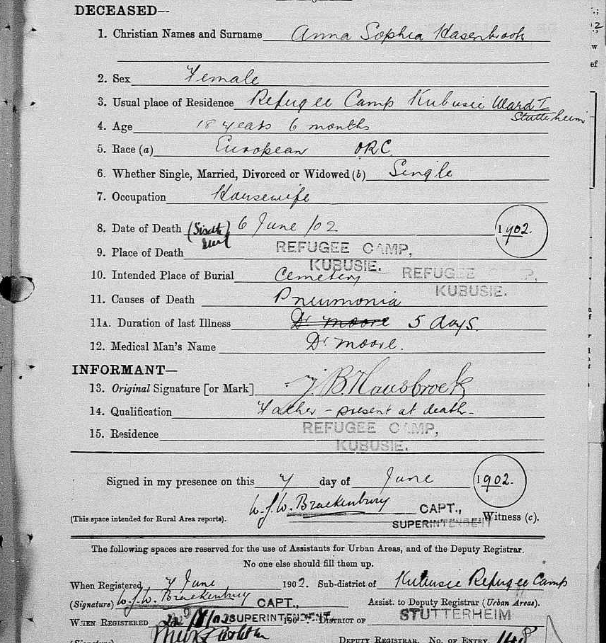 DECEASED—
1. Christian Names and Surname Anna Sophia Hasenbrook
2. Sex Female
3. Usual place of Residence Refugee Camp Kubusie Ward I
Stutterheim
4. Age 18 years 6 months
5. Race (a) European ORC
6. Whether Single, Married, Divorced or Widowed (b) Single
7. Occupation Housewife
8. Date of Death (Sixth 6 June /02 1902.
9. Place of Death REFUGEE CAMP,
KUBUSIE.
10. Intended Place of Burial Cemetery REFUGEE
KUBUSIE.
11. Causes of Death Pneumonia
11A. Duration of last Illness Dr Moore 5 days.
12. Medical Man's Name Dr Moore.
INFORMANT—
13. Original Signature [or Mark] J. B. Hausbroek
14. Qualification Father - present at death.
15. Residence REFUGEE CAMP,
KUBUSIE.
Signed in my presence on this 7 day of June 1902.
W. J. W. Brackenbury CAPT.,
(This space intended for Rural Area reports). SUPERINTENDENT Witness (c).
The following spaces are reserved for the use of Assistants for Urban Areas, and of the Deputy Registrar.
No one else should fill them up.
When Registered 7 June 1902. Sub-district of Kubusie Refugee Camp
(Signature) W. J. W. Brackenbury CAPT., Assist. to Deputy Registrar (Urban Areas).
WHEN REGISTERED SUPERINTENDENT DISTRICT OF STUTTERHEIM
DEPUTY REGISTRAR. NO. OF ENTRY 148